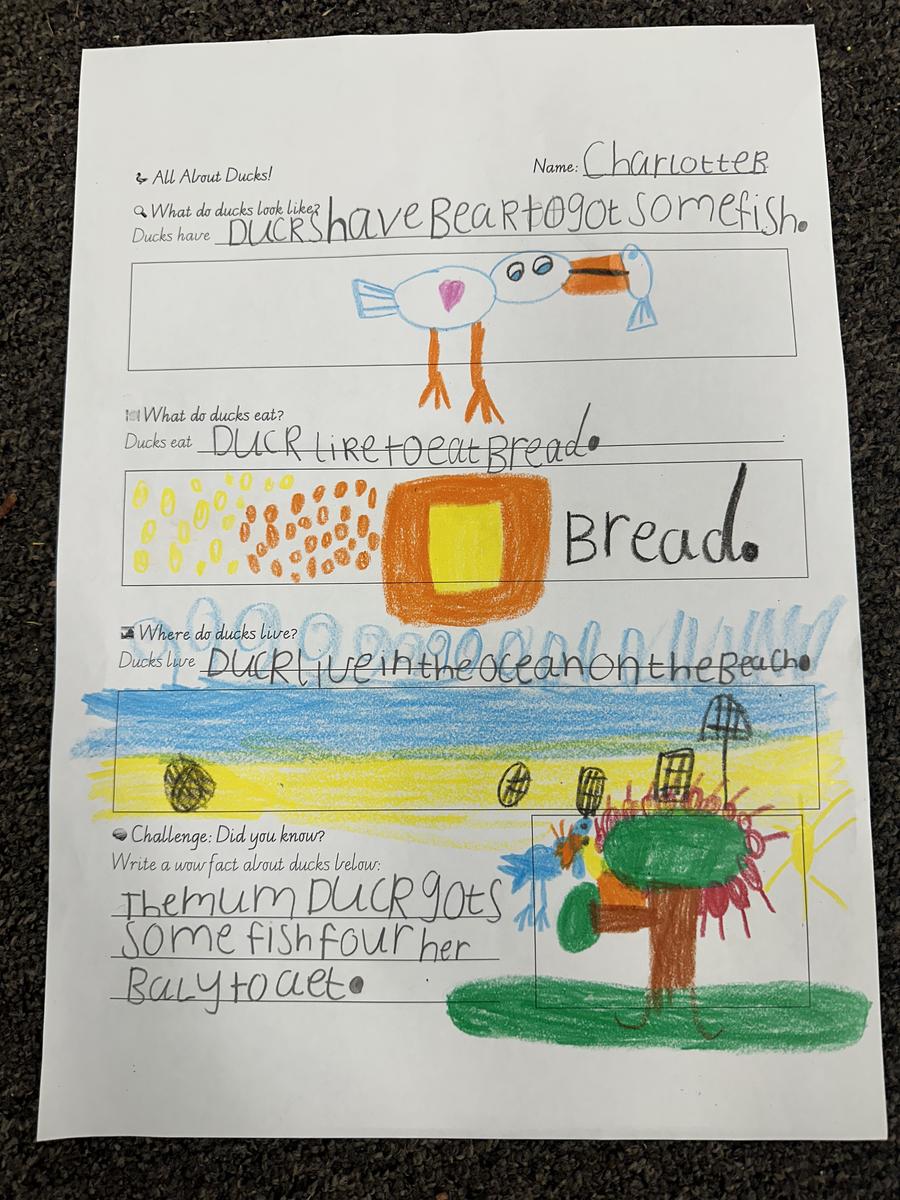 All About Ducks!
Name: CharLotteB
What do ducks look like?
Ducks have DUCRS have BeaR to got some fish.
What do ducks eat?
Ducks eat DUCR Like to eat Bread.
Bread.
Where do ducks live?
Ducks live DUCR Live in the ocean on the Beach.
Challenge: Did you know?
Write a wow fact about ducks below:
The mum DUCR gots
some fish four her
BaLy to aet.